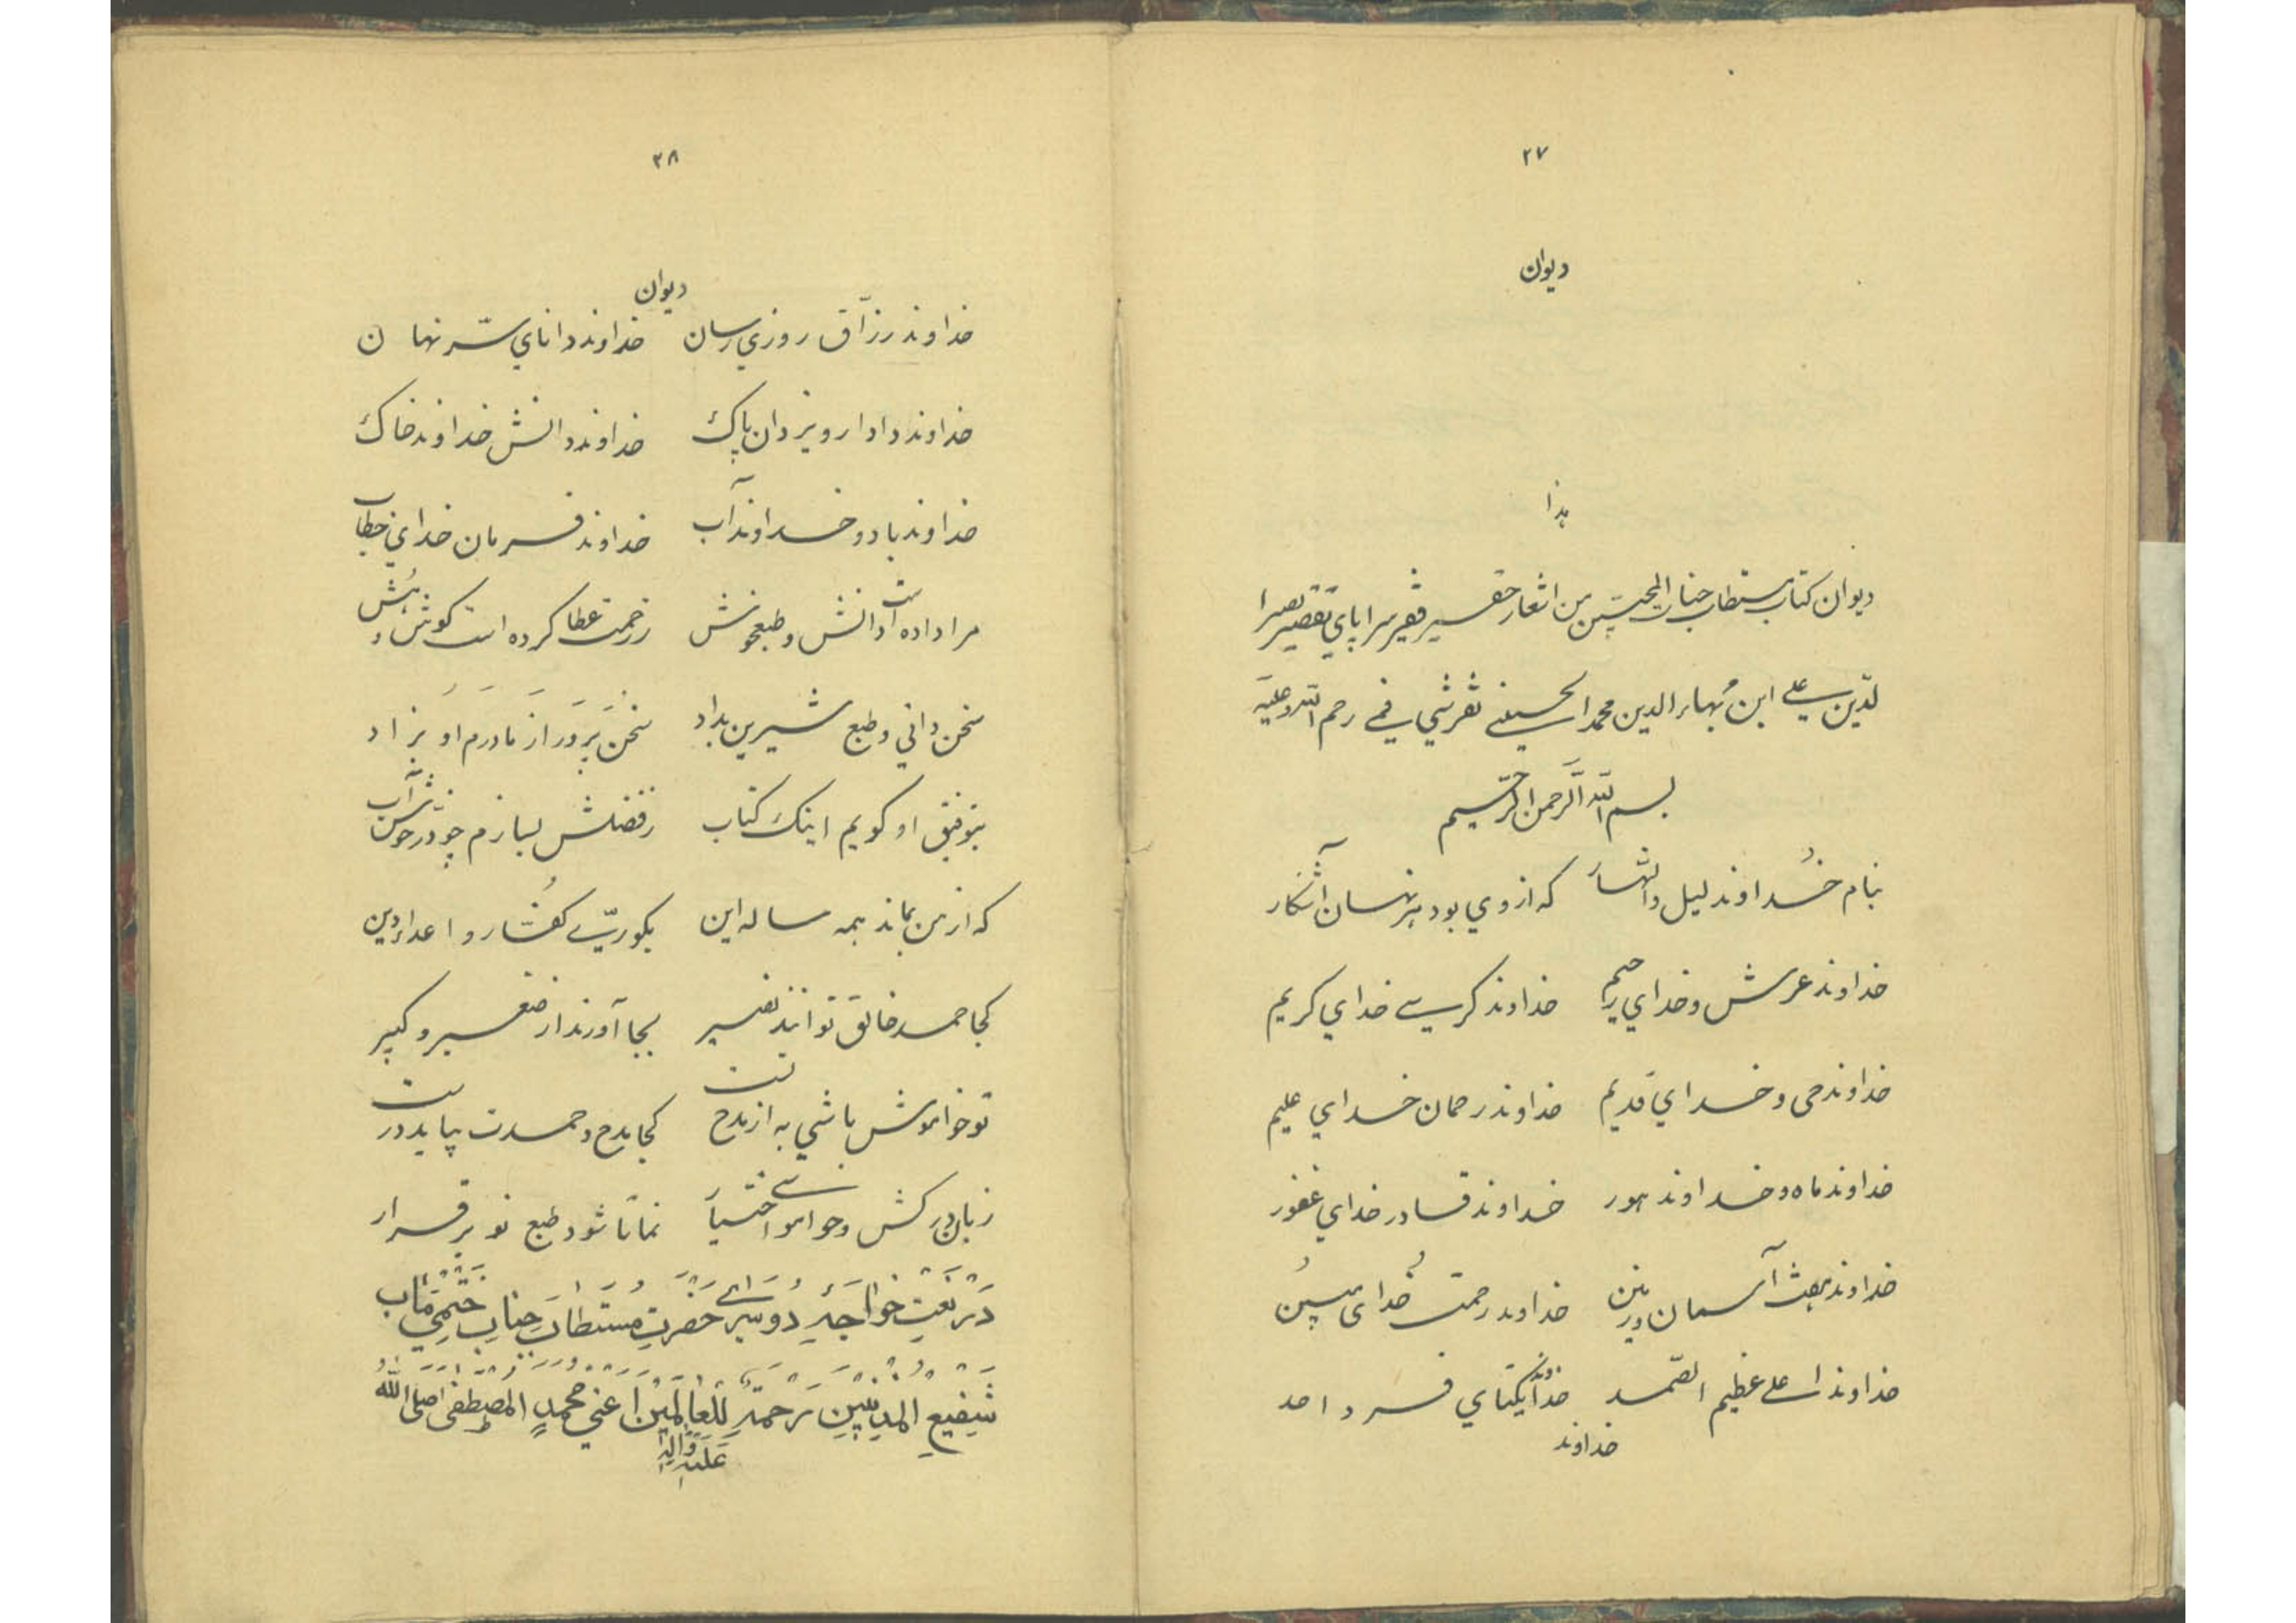 ۲۷
دیوان
هذا
دیوان کتاب مستطاب جنات المحبین من اشعار حقیر فقیر سراپای تقصیر نصیرا
لدین سید علی ابن بهاء الدین محمد الحسینی تفرشی فی رحم الله علیه
بسم الله الرحمن الرحیم
بنام خُداوند لیل والنهار که از وی بود هر نهان آشکار
خداوند عرش و خدای رحیم خداوند کرسی خدای کریم
خداوند حی و خدای قدیم خداوند رحمان خدای علیم
خداوند ماه و خداوند هور خداوند قادر خدای غفور
خداوند هفت آسمان و زمین خداوند رحمت خُدای مبین
خداوند اعلی عظیم الصّمد خداوند یکتای فرد احد
خداوند
۲۸
دیوان
خداوند رزّاق روزی رسان خداوند دانای سّر نهان
خداوند دادار و یزدان پاک خداوند دانش خداوند خاک
خداوند باد و خداوند آب خداوند فرمان خدای خطاب
مرا داده است او دانش و طبع خوش ز رحمت عطا کرده است گوش و هُش
سخن دانی و طبع شیرین بداد سخن پرور از مادرم او بزاد
بتوفیق او گویم اینک کتاب ز فضلش بسازم چو در خوشاب
که از من بماند همه ساله این بکوریّ کفّار و اعداء دین
کجا حمد خالق توانند نصیر بجا آورند از صغیر و کبیر
تو خواموش باشی به از مدحتت کجا مدح و حمدت بپاید درست
زبان درکش و خوامشی اختیار نما تا شود طبع تو برقرار
دَر نَعتِ خواجَۀِ دُو سَرای حَضرَتِ مُستَطاب جنابِ خَتمی مَآب
شَفیعِ المُذنبین رَحمةً لِلعالَمین اَعنی مُحمدٍ المُصطَفی صَلی الله
عَلَیهِ وَآلِهِ